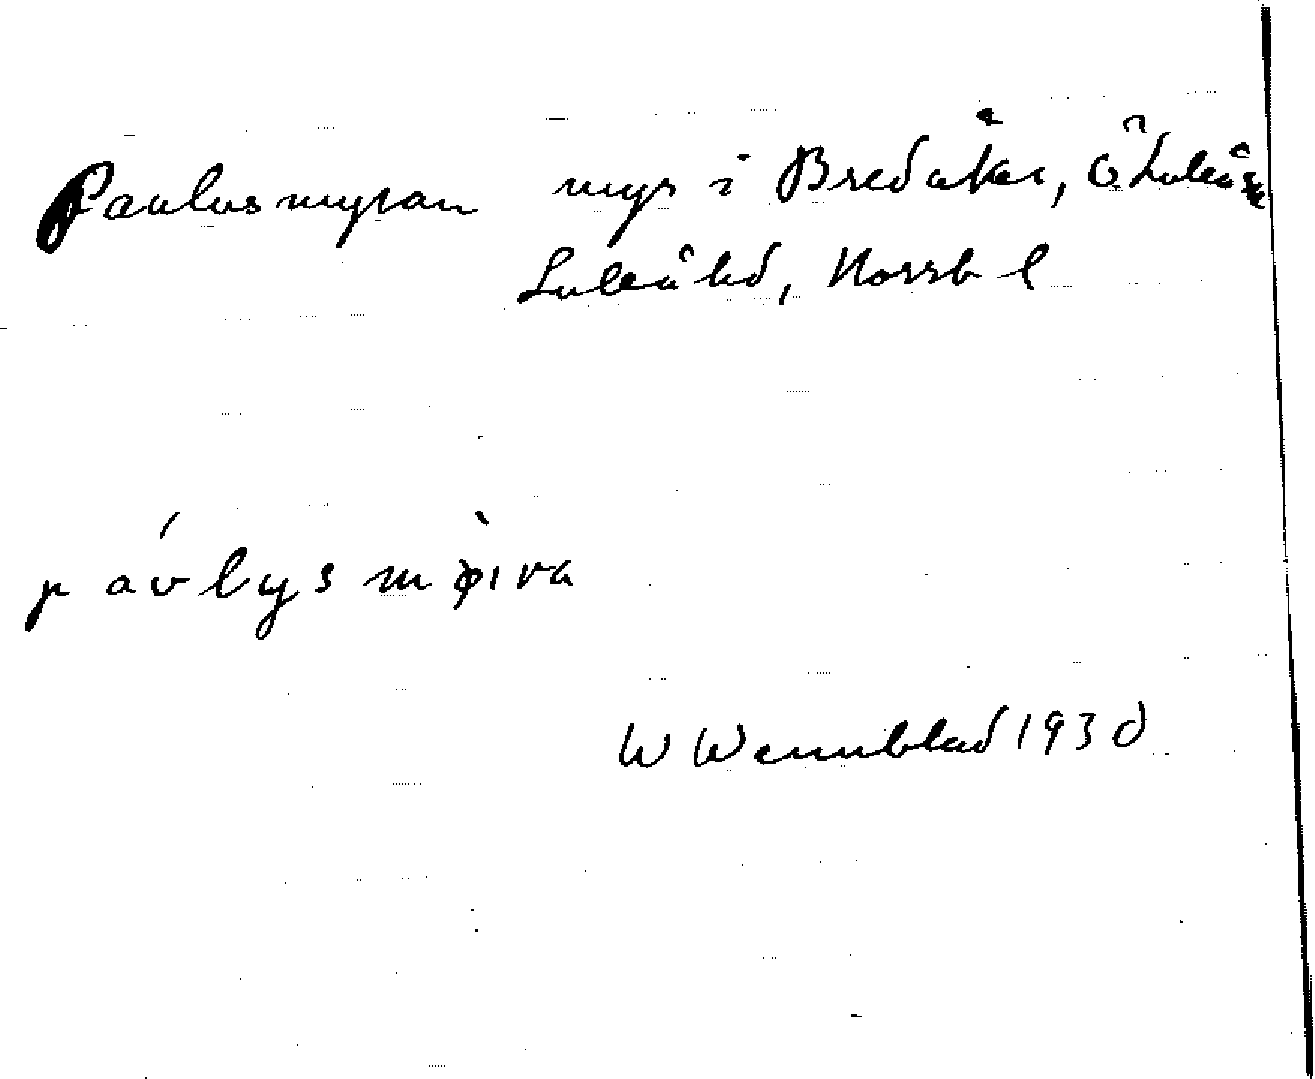 Paulusmyran myr i Bredåker, ÖLuleå sn
Luleå hd, Norrb l
pávlys mø̀ıra
W Wennblad 1930